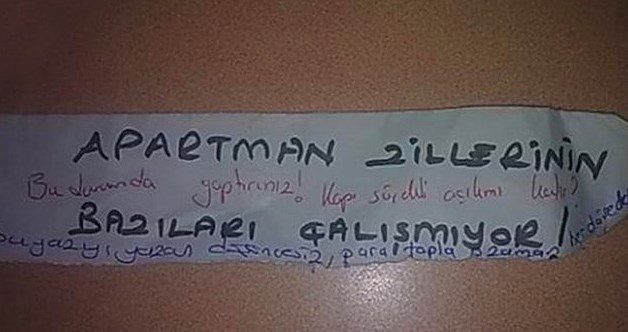 APARTMAN ZİLLERİNİN
Bu durumda yaptırınız! Kapı sürekli açılmı
BAZILARI ÇALIŞMIYOR!
bu yazıyı yazan düşüncesiz, para topla o zaman